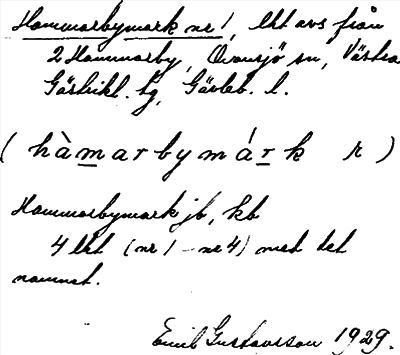 Hammarbymark nr 1, lht avs från
2 Hammarby, Ovansjö sn, Västra
Gästrikl. tg, Gävleb. l.
(hàmarbymárk r)
Hammarbymark jb, kb
4 lht (nr 1 - nr 4) med det
namnet.
Emil Gustavsson 1929.